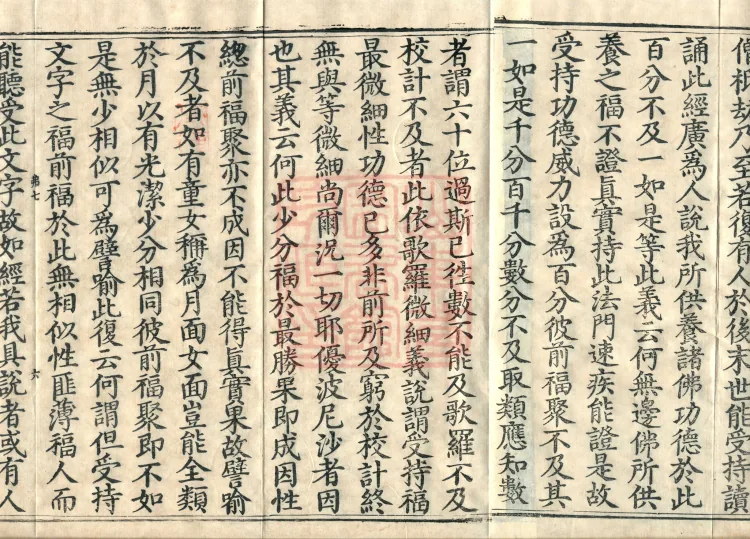 僧祇劫乃至若復有人於後末世能受持讀
誦此經廣為人說我所供養諸佛功德於此
百分不及一如是等此義云何無邊佛所供
養之福不證眞實持此法門速疾能證是故
受持功德威力設為百分彼前福聚不及其
一如是千分百千分數分不及取類應知數
者謂六十位過斯已徃數不能及歌羅不及
校計不及者此依歌羅微細義說謂受持福
最微細性功德已多非前所及窮於校計終
無與等微細尚爾況一切耶優波尼沙者因
也其義云何此少分福於最勝果即成因性
緫前福聚亦不成因不能得眞實果故譬喻
不及者如有童女稱為月面女面豈能全類
於月以有光潔少分相同彼前福聚即不如
是無少相似可為譬喻此復云何謂但受持
文字之福前福於此無相似性匪薄福人而
弟七 六
能聽受此文字故如經若我具說者或有人